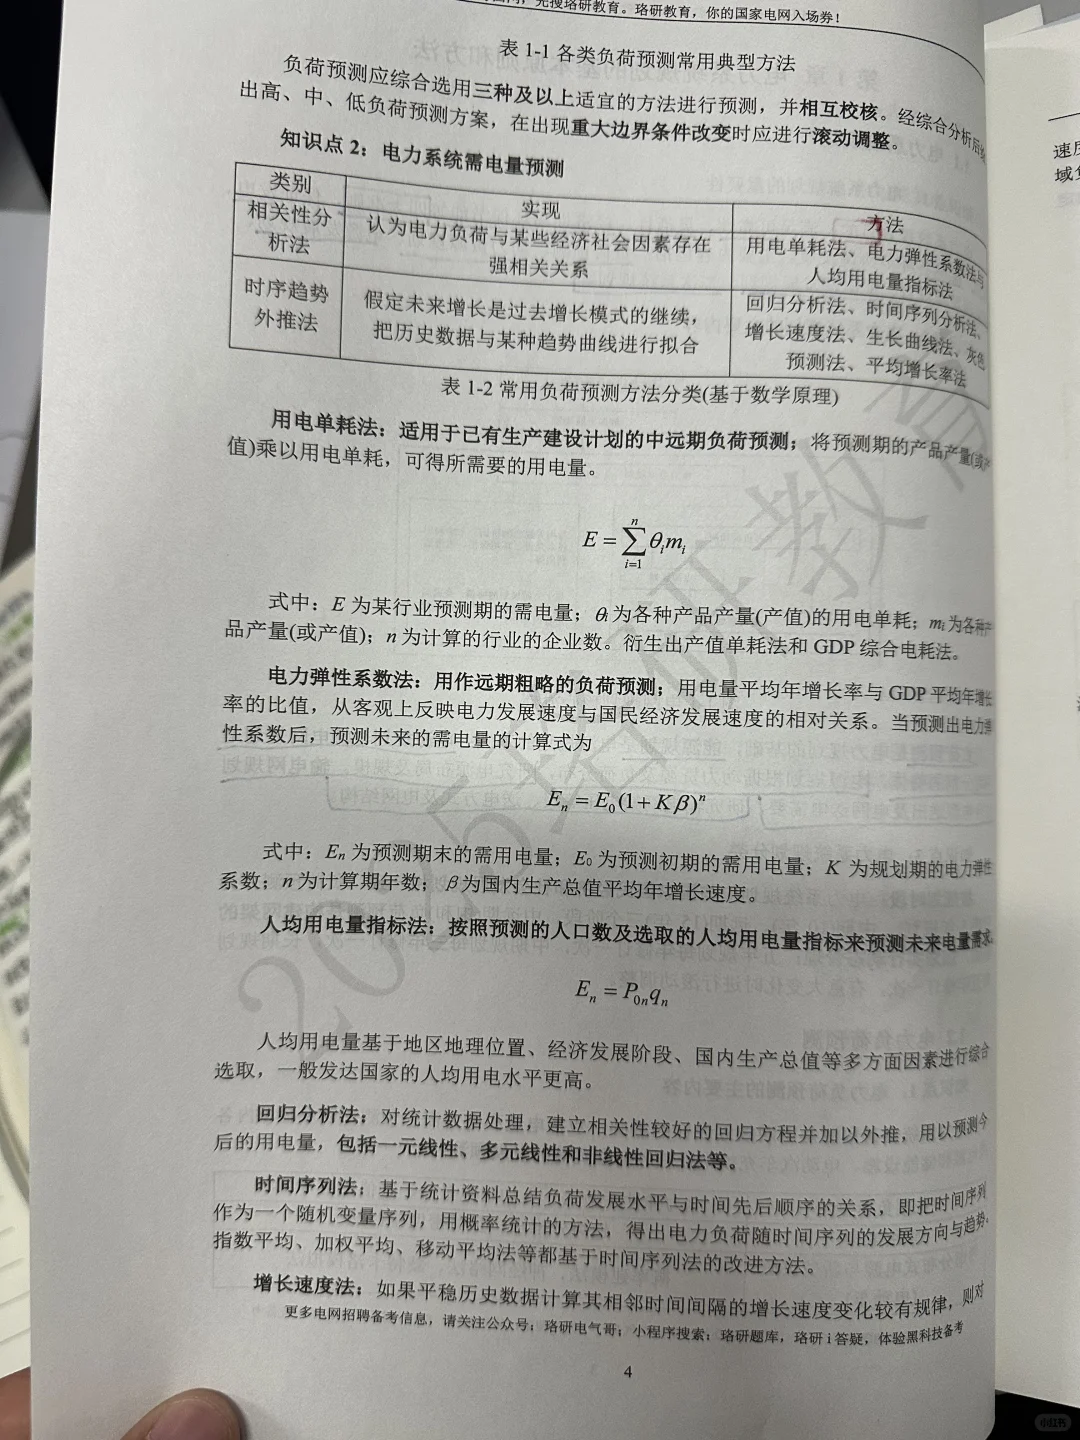 先搜珞研教育。珞研教育，你的国家电网入场券！
表 1-1 各类负荷预测常用典型方法
负荷预测应综合选用三种及以上适宜的方法进行预测，并相互校核。经综合分析后给
出高、中、低负荷预测方案，在出现重大边界条件改变时应进行滚动调整。
知识点 2：电力系统需电量预测
类别 实现 方法
相关性分析法 认为电力负荷与某些经济社会因素存在强相关关系 用电单耗法、电力弹性系数法与人均用电量指标法
时序趋势外推法 假定未来增长是过去增长模式的继续，把历史数据与某种趋势曲线进行拟合 回归分析法、时间序列分析法、增长速度法、生长曲线法、灰色预测法、平均增长率法
表 1-2 常用负荷预测方法分类(基于数学原理)
用电单耗法：适用于已有生产建设计划的中远期负荷预测；将预测期的产品产量(或产
值)乘以用电单耗，可得所需要的用电量。
E = ∑_{i=1}^{n} θ_i m_i
式中：E 为某行业预测期的需电量；θi 为各种产品产量(产值)的用电单耗；mi 为各种产
品产量(或产值)；n 为计算的行业的企业数。衍生出产值单耗法和 GDP 综合电耗法。
电力弹性系数法：用作远期粗略的负荷预测；用电量平均年增长率与 GDP 平均年增长
率的比值，从客观上反映电力发展速度与国民经济发展速度的相对关系。当预测出电力弹
性系数后，预测未来的需电量的计算式为
E_n = E_0(1 + Kβ)^n
式中：En 为预测期末的需用电量；E0 为预测初期的需用电量；K 为规划期的电力弹性
系数；n 为计算期年数；β 为国内生产总值平均年增长速度。
人均用电量指标法：按照预测的人口数及选取的人均用电量指标来预测未来电量需求。
E_n = P_{0n} q_n
人均用电量基于地区地理位置、经济发展阶段、国内生产总值等多方面因素进行综合
选取，一般发达国家的人均用电水平更高。
回归分析法：对统计数据处理，建立相关性较好的回归方程并加以外推，用以预测今
后的用电量，包括一元线性、多元线性和非线性回归法等。
时间序列法：基于统计资料总结负荷发展水平与时间先后顺序的关系，即把时间序列
作为一个随机变量序列，用概率统计的方法，得出电力负荷随时间序列的发展方向与趋势。
指数平均、加权平均、移动平均法等都基于时间序列法的改进方法。
增长速度法：如果平稳历史数据计算其相邻时间间隔的增长速度变化较有规律，则对
更多电网招聘备考信息，请关注公众号：珞研电气哥；小程序搜索：珞研题库，珞研 i 答疑，体验黑科技备考
4
2025珞研教育
速度
域负
小红书